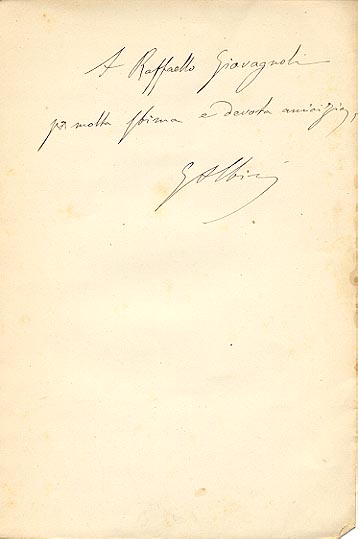 A Raffaello Giovagnoli
per molta stima e devota amicizia,
GAlbini